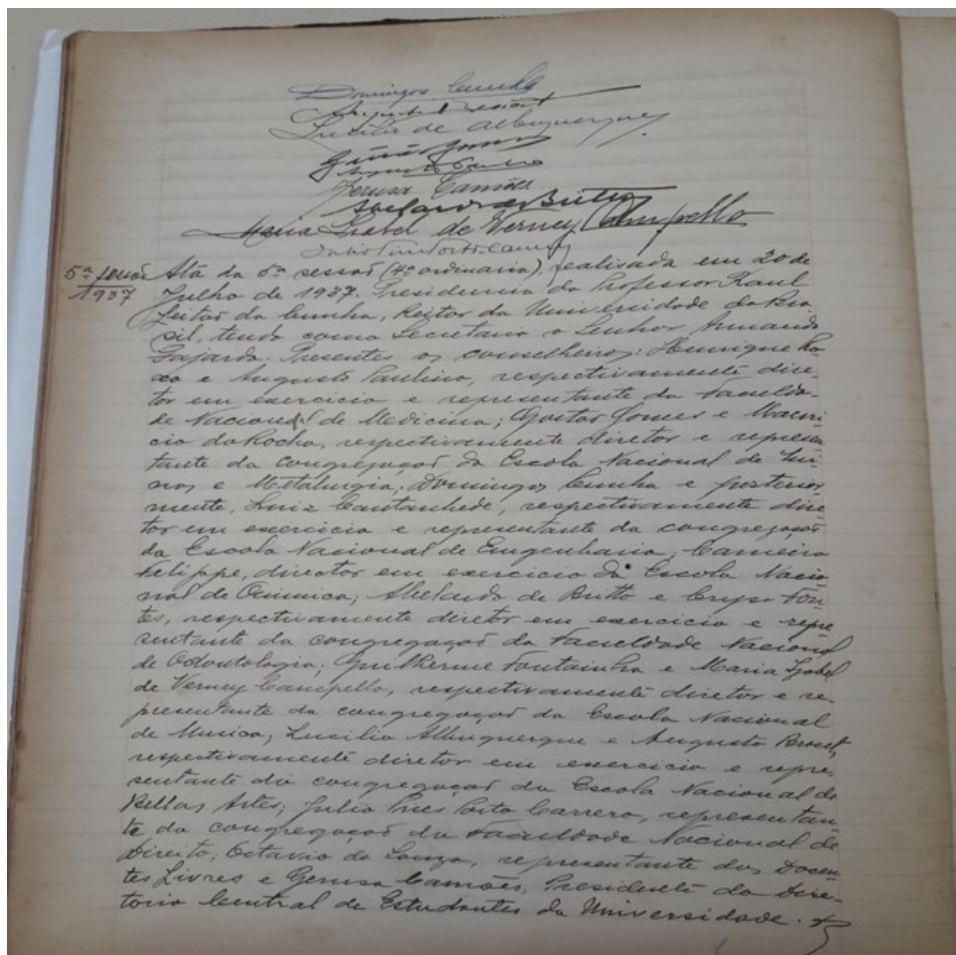 Domingos Cunha
Lucilia de Albuquerque
Jerusa Camões
Abelardo de Britto
Maria Isabel de Verney Campello
Julio Pires Porto-Carrero
5ª sessão
1937
Ata da 5ª sessão (4ª ordinaria), realisada em 20 de
Julho de 1937. Presidencia do Professor Raul
Leitão da Cunha, Reitor da Universidade do Bra-
sil, tendo como Secretario o Senhor Armando
Fajardo. Presentes os conselheiros: Henrique Ro-
xo e Augusto Paulino, respectivamente dire-
tor em exercicio e representante da Faculda-
de Nacional de Medicina; Gastão Gomes e Mauri
cio da Rocha, respectivamente diretor e represen
tante da congregação da Escola Nacional de Mi-
nas e Metalurgia; Domingos Cunha e posterior
mente, Luiz Cantanhede, respectivamente dire
tor em exercicio e representante da congregação
da Escola Nacional de Engenharia; Carneiro
Felippe, director em exercicio da Escola Nacio
nal de Quimica; Abelardo de Britto e Chryso Fon
tes, respectivamente diretor em exercicio e repre
sentante da congregação da Faculdade Nacional
de Odontologia; Guilherme Fontainha e Maria Izabel
de Verney Campello, respectivamente diretor e re-
presentante da congregação da Escola Nacional
de Musica; Lucilio Albuquerque e Augusto Bracet,
respectivamente diretor em exercicio e repre-
sentante da congregação da Escola Nacional de
Bellas Artes; Julio Pires Porto Carrero, representan-
te da congregação da Faculdade Nacional de
Direito; Octavio de Souza, representante dos Docen
tes Livres e Gerusa Camões, Presidente do Dire-
torio Central de Estudantes da Universidade.